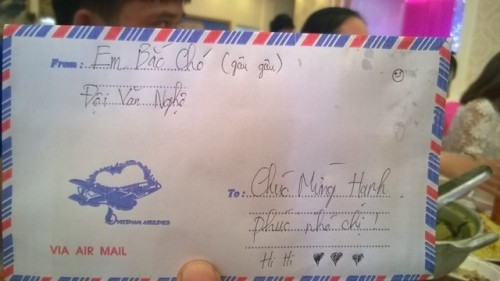 From: Em Bắc Chó (gâu gâu)
Đội Văn Nghệ
VIETNAM AIRLINES
VIA AIR MAIL
To: Chúc Mừng Hạnh
phúc nhé chị!
Hi Hi ♥ ♥ ♥